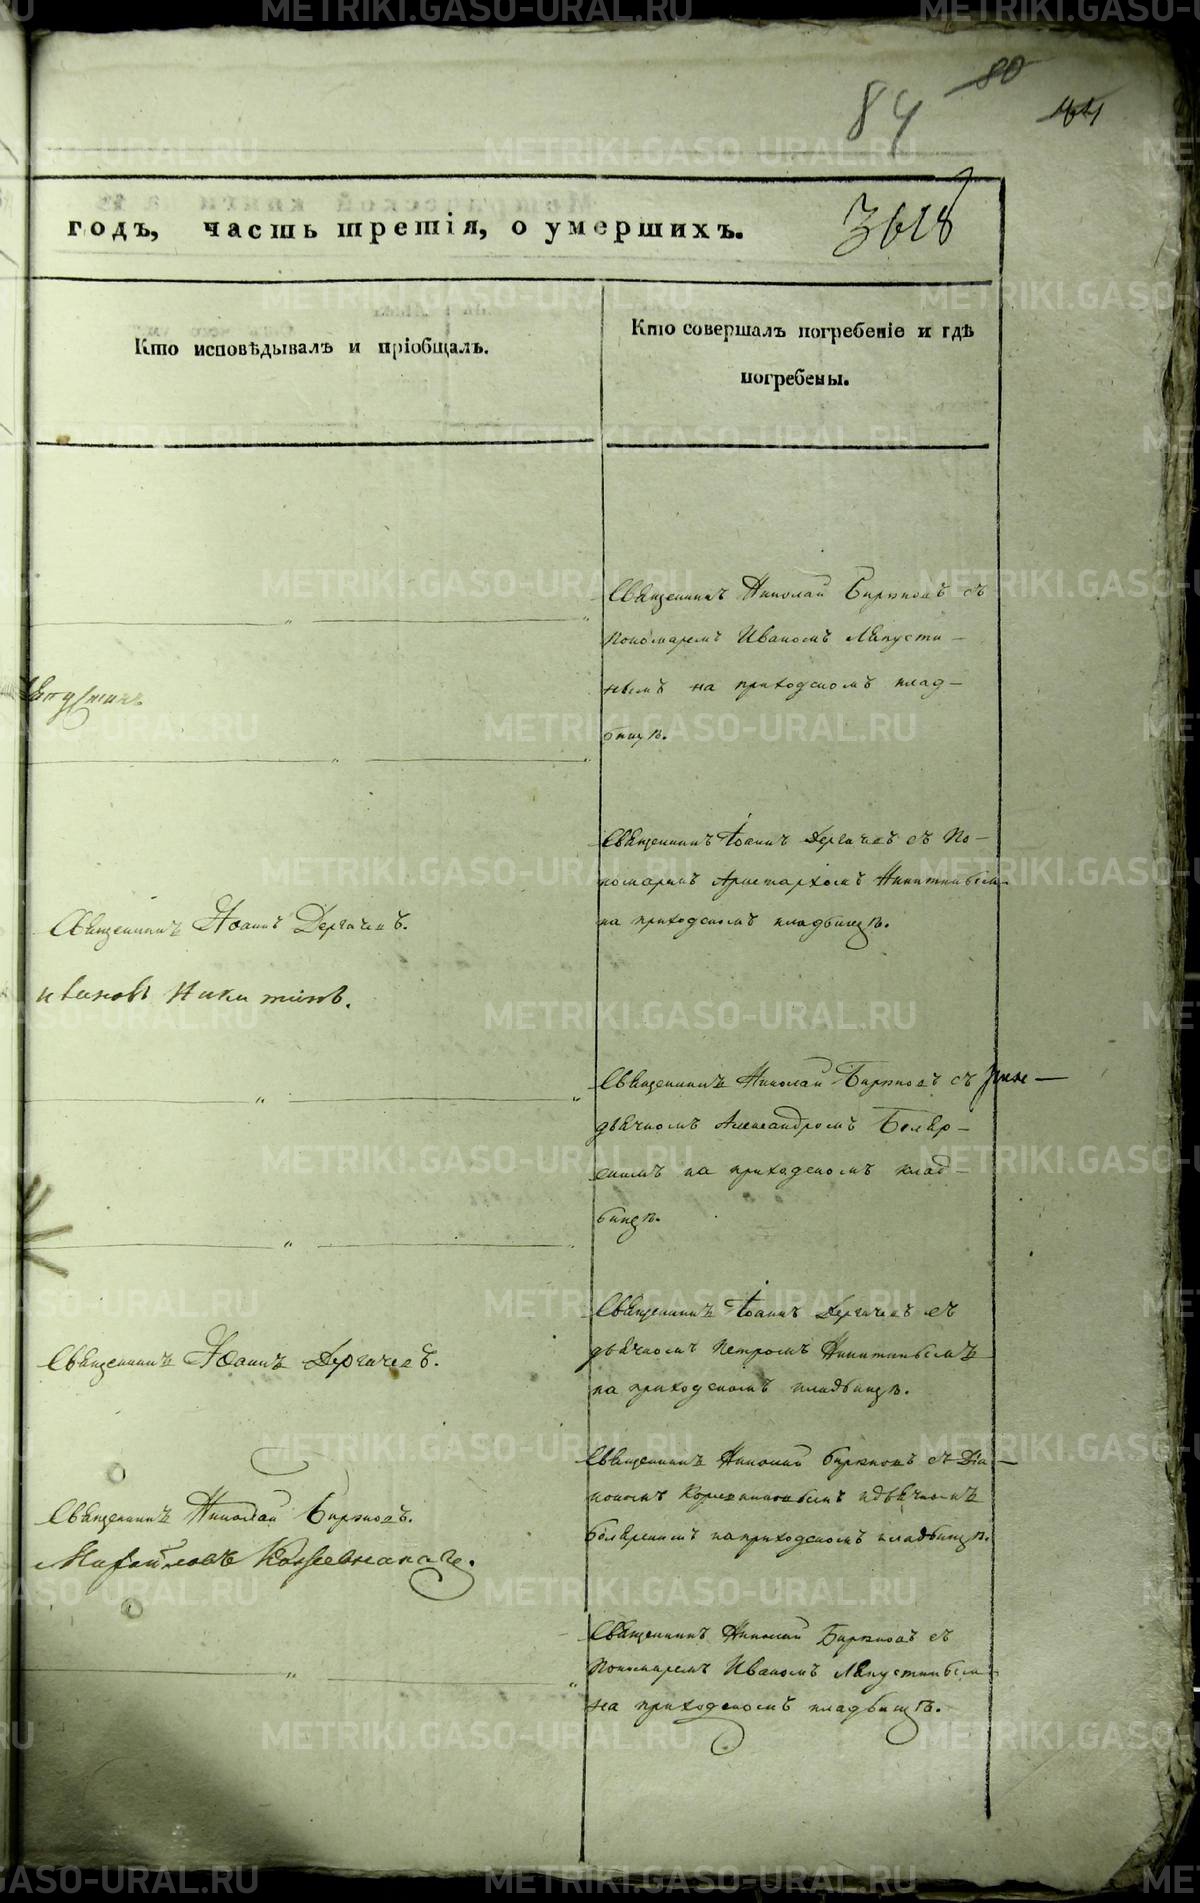 84
80
годъ, часть третія, о умершихъ.
3618
Кто исповѣдывалъ и пріобщалъ.
Кто совершалъ погребеніе и гдѣ
погребены.
Священникъ Николай Бирюковъ съ
пономаремъ Иваномъ Ляпусти-
нымъ на приходскомъ клад-
бищѣ.
Священникъ Іоаннъ Дергачевъ съ По-
номаремъ Аристархомъ Никитинымъ
на приходскомъ кладбищѣ.
Священникъ Іоаннъ Дергачевъ.
Ивановъ Никитинъ.
Священникъ Николай Бирюковъ съ
дьячкомъ Александромъ Бояр-
скимъ на приходскомъ клад-
бищѣ.
Священникъ Іоаннъ Дергачевъ съ
дьячкомъ Петромъ Никитинымъ
на приходскомъ кладбищѣ.
Священникъ Іоаннъ Дергачевъ.
Священникъ Николай Бирюковъ съ Діа-
кономъ и дьячкомъ
Боярскимъ на приходскомъ кладбищѣ.
Священникъ Николай Бирюковъ.
Священникъ Николай Бирюковъ съ
Пономаремъ Иваномъ Ляпустинымъ
на приходскомъ кладбищѣ.
METRIKI.GASO-URAL.RU